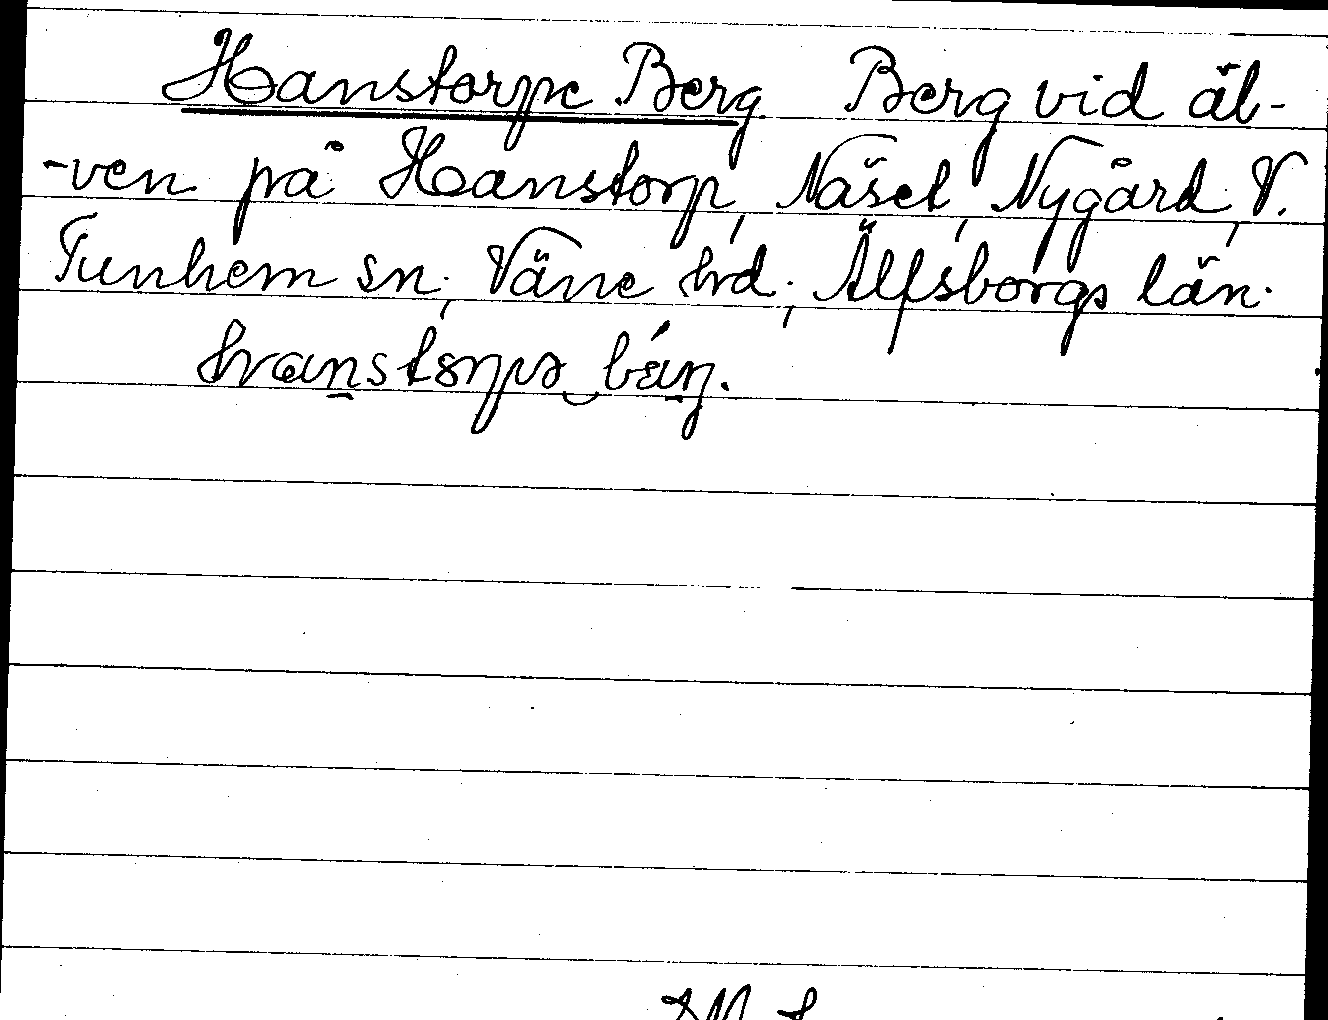 Hanstorps Berg. Berg vid äl-
-ven på Hanstorp, Näset, Nygård, V.
Tunhem sn, Väne hd; Älfsborgs län.